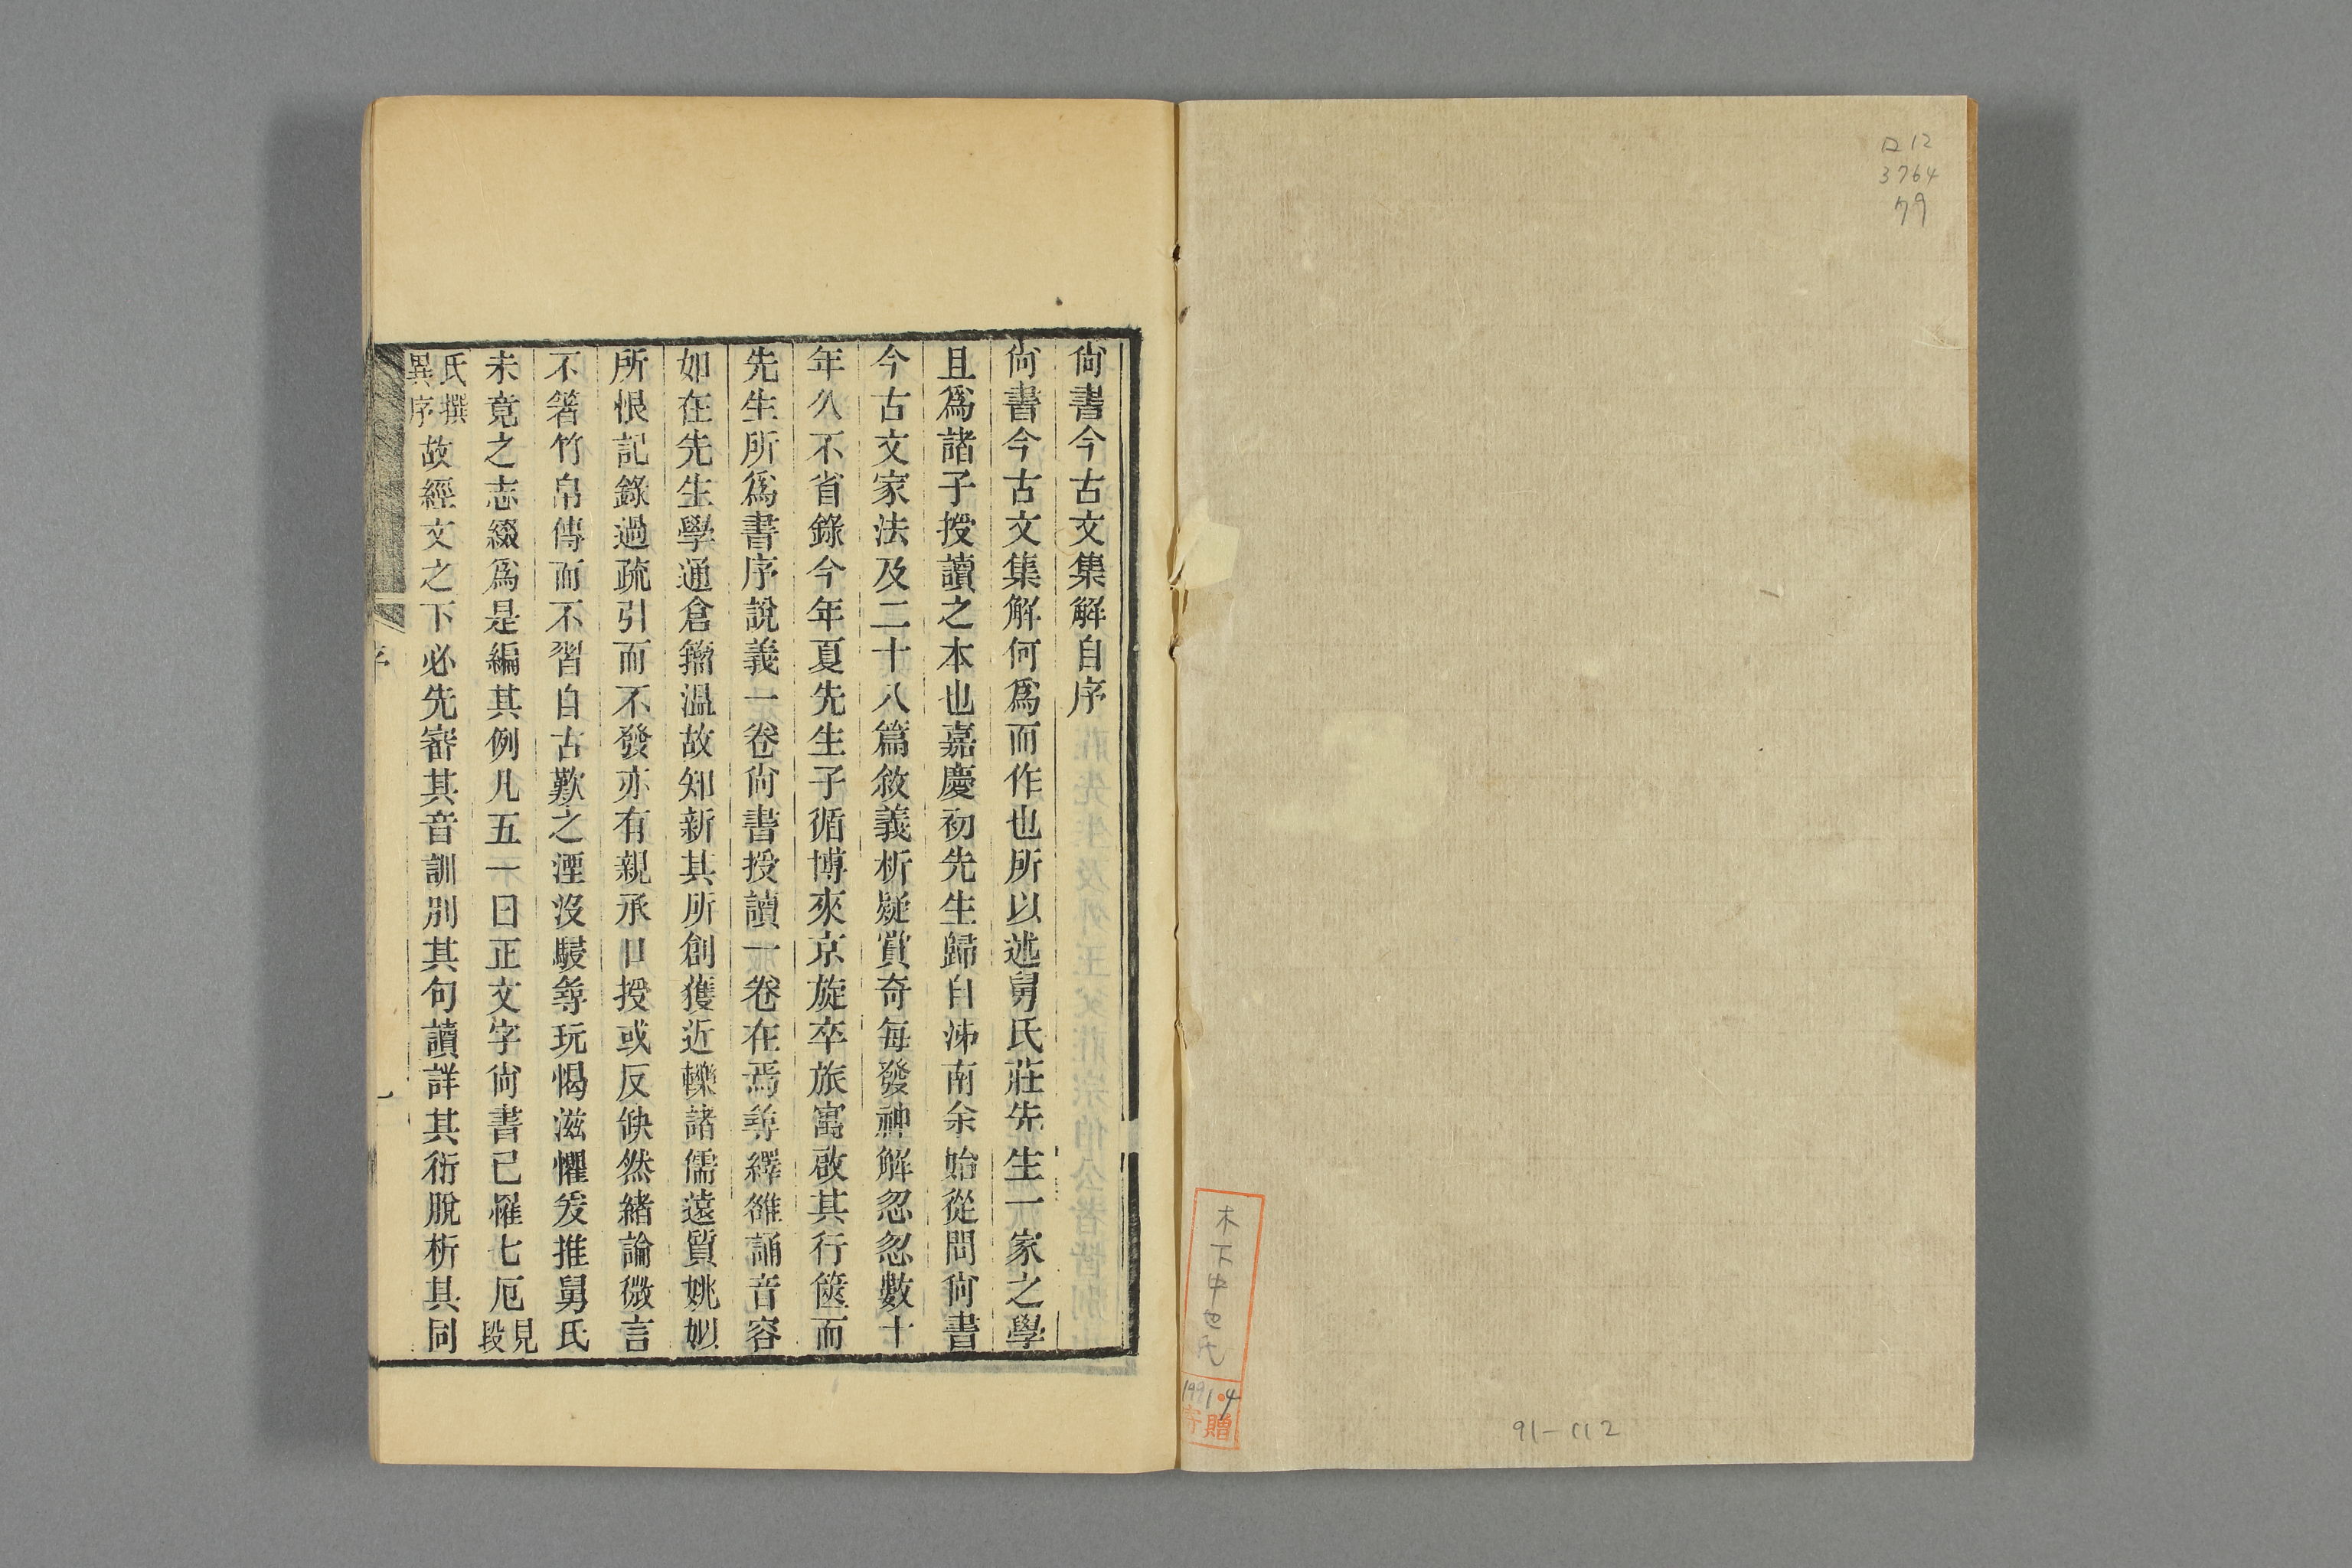 ロ12
3764
79
木下中也氏
1991.4
寄贈
91-112
尙書今古文集解自序
尙書今古文集解何爲而作也所以述舅氏莊先生一家之學
且爲諸子授讀之本也嘉慶初先生歸自泲南余始從問尙書
今古文家法及二十八篇敘義析疑賞奇每發神解忽忽數十
年久不省錄今年夏先生子循博來京旋卒旅寓啟其行篋而
先生所爲書序說義一卷尙書授讀一卷在焉尋繹雒誦音容
如在先生學通倉籀溫故知新其所創獲近轢諸儒遠質姚姒
所恨記錄過疏引而不發亦有親承口授或反缺然緒論微言
不箸竹帛傳而不習自古歎之湮沒駸尋玩愒滋懼爰推舅氏
未竟之志綴爲是編其例凡五一曰正文字尙書已罹七厄見段
氏撰異序故經文之下必先審其音訓別其句讀詳其衍脫析其同
序
一